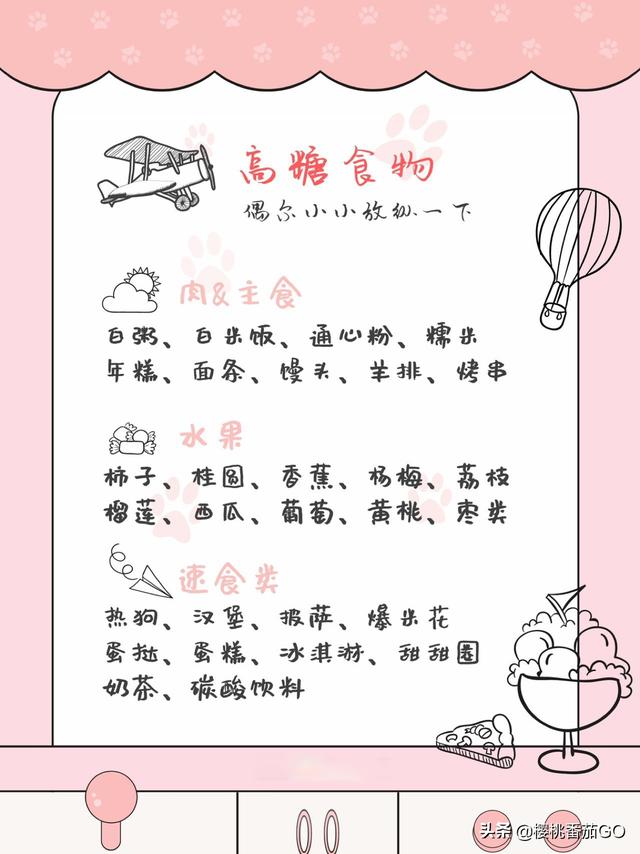 高糖食物
偶尔小小放纵一下
肉&主食
白粥、白米饭、通心粉、糯米
年糕、面条、馒头、羊排、烤串
水果
柿子、桂圆、香蕉、杨梅、荔枝
榴莲、西瓜、葡萄、黄桃、枣类
速食类
热狗、汉堡、披萨、爆米花
蛋挞、蛋糕、冰淇淋、甜甜圈
奶茶、碳酸饮料
头条 @樱桃番茄GO